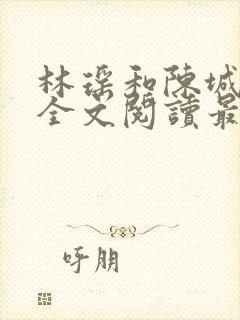 林瑶和陳城
全文閱讀最
呼朋